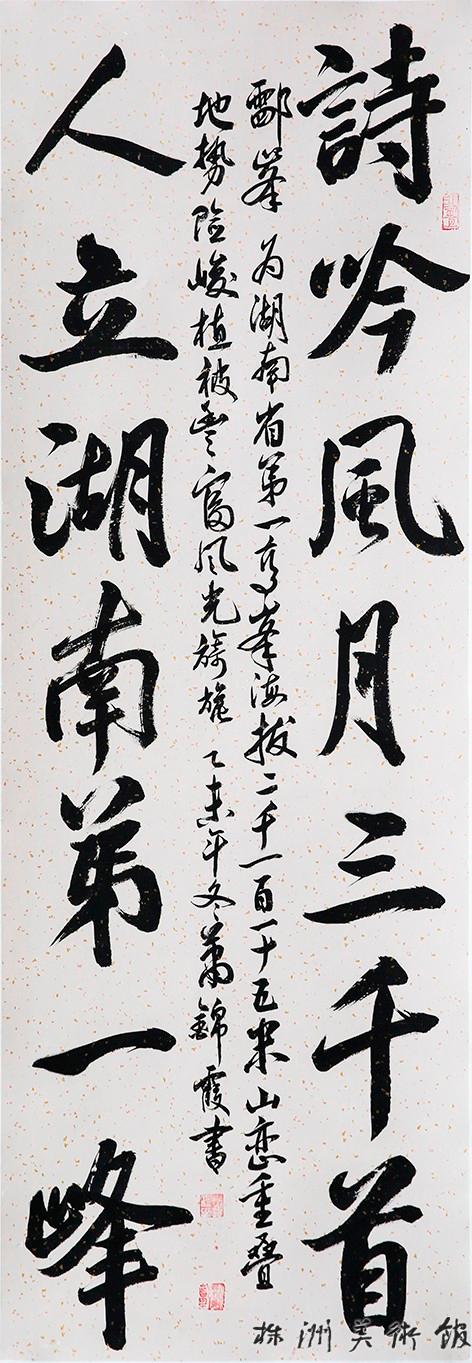 詩吟風月三千首
酃峯 为湖南省第一高峯海拔二千一百一十五米山峦重叠
地势险峻植被丰富风光旖旎 乙未年冬萧錦霞書
人立湖南弟一峰
株洲美術館